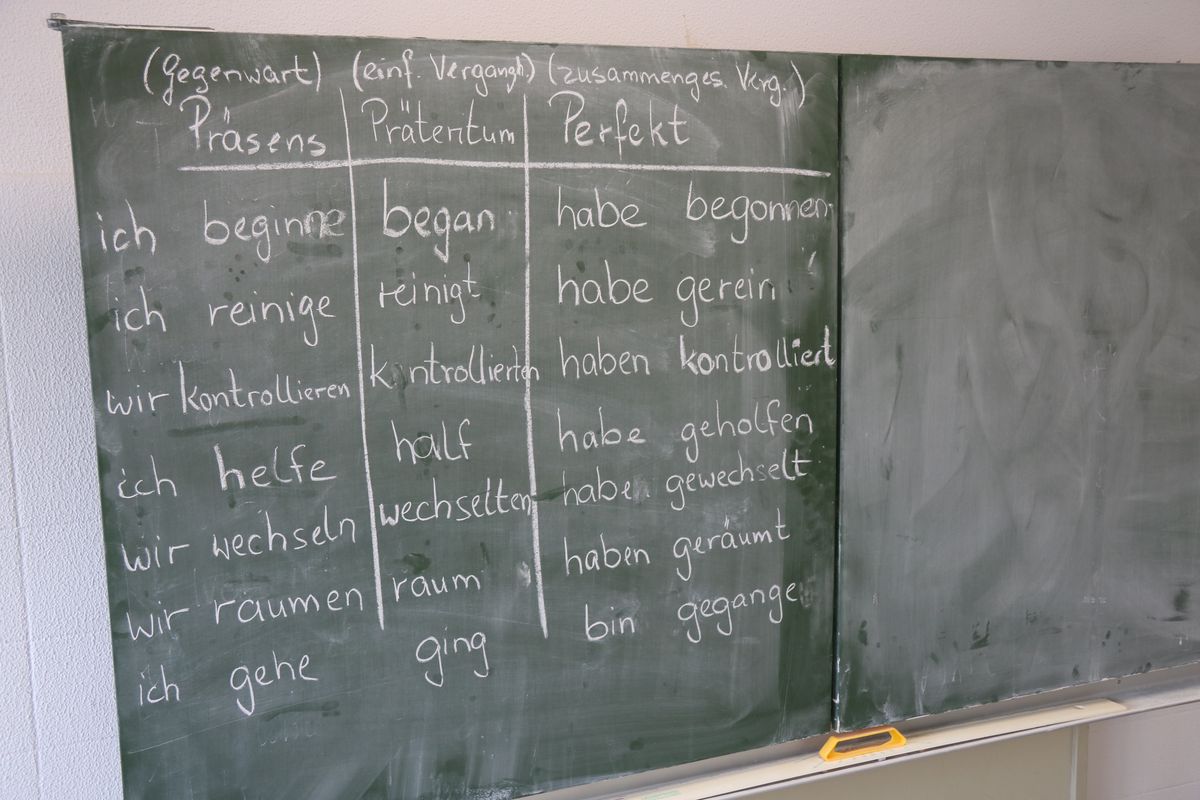 (Gegenwart) (einf. Vergangh.) (zusammenges. Verg.)
Präsens Präteritum Perfekt
ich beginne began habe begonnen
ich reinige reinigt habe gerein
wir kontrollieren kontrollierten haben kontrolliert
ich helfe half habe geholfen
wir wechseln wechselten habe gewechselt
wir räumen raum haben geräumt
ich gehe ging bin gegange